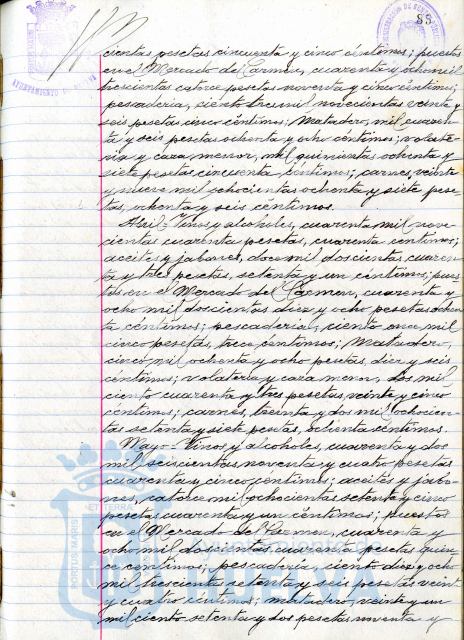 88
cientas pesetas cincuenta y cinco céntimos; puestos
en el Mercado del Carmen, cuarenta y ocho mil
trescientas catorce pesetas noventa y cinco céntimos;
pescadería, ciento tres mil novecientas veinte y
seis pesetas cinco céntimos; Matadero, mil cuaren-
ta y seis pesetas ochenta y ocho céntimos; volate-
ría y caza menor, mil quinientas ochenta y
siete pesetas cincuenta céntimos; carnes, veinte
y nueve mil ochocientas ochenta y siete pese-
tas, ochenta y seis céntimos.
Abril- Vinos y alcoholes, cuarenta mil nove-
cientas cuarenta pesetas, cuarenta céntimos;
aceites y jabones, doce mil doscientas cuaren-
ta y tres pesetas, setenta y un céntimos; pues-
tos en el Mercado del Carmen, cuarenta y
ocho mil doscientas diez y ocho pesetas ochen-
ta céntimos; pescadería, ciento once mil
cinco pesetas, trece céntimos; Matadero,
cinco mil ochenta y ocho pesetas, diez y seis
céntimos; volatería y caza menor, dos mil
ciento cuarenta y tres pesetas, veinte y cinco
céntimos; carnes, treinta y dos mil ochocien-
tas setenta y siete pesetas, ochenta céntimos.
Mayo- Vinos y alcoholes, cuarenta y dos
mil seiscientas noventa y cuatro pesetas
cuarenta y cinco céntimos; aceites y jabo-
nes, catorce mil ochocientas setenta y cinco
pesetas cuarenta y un céntimos; puestos
en el Mercado del Carmen, cuarenta y
ocho mil doscientas cuarenta pesetas quin-
ce céntimos; pescadería, ciento diez y ocho
mil trescientas setenta y seis pesetas veinte
y cuatro céntimos; matadero, veinte y un
mil ciento setenta y dos pesetas noventa y
PORTUS MARIS ET TERRÆ